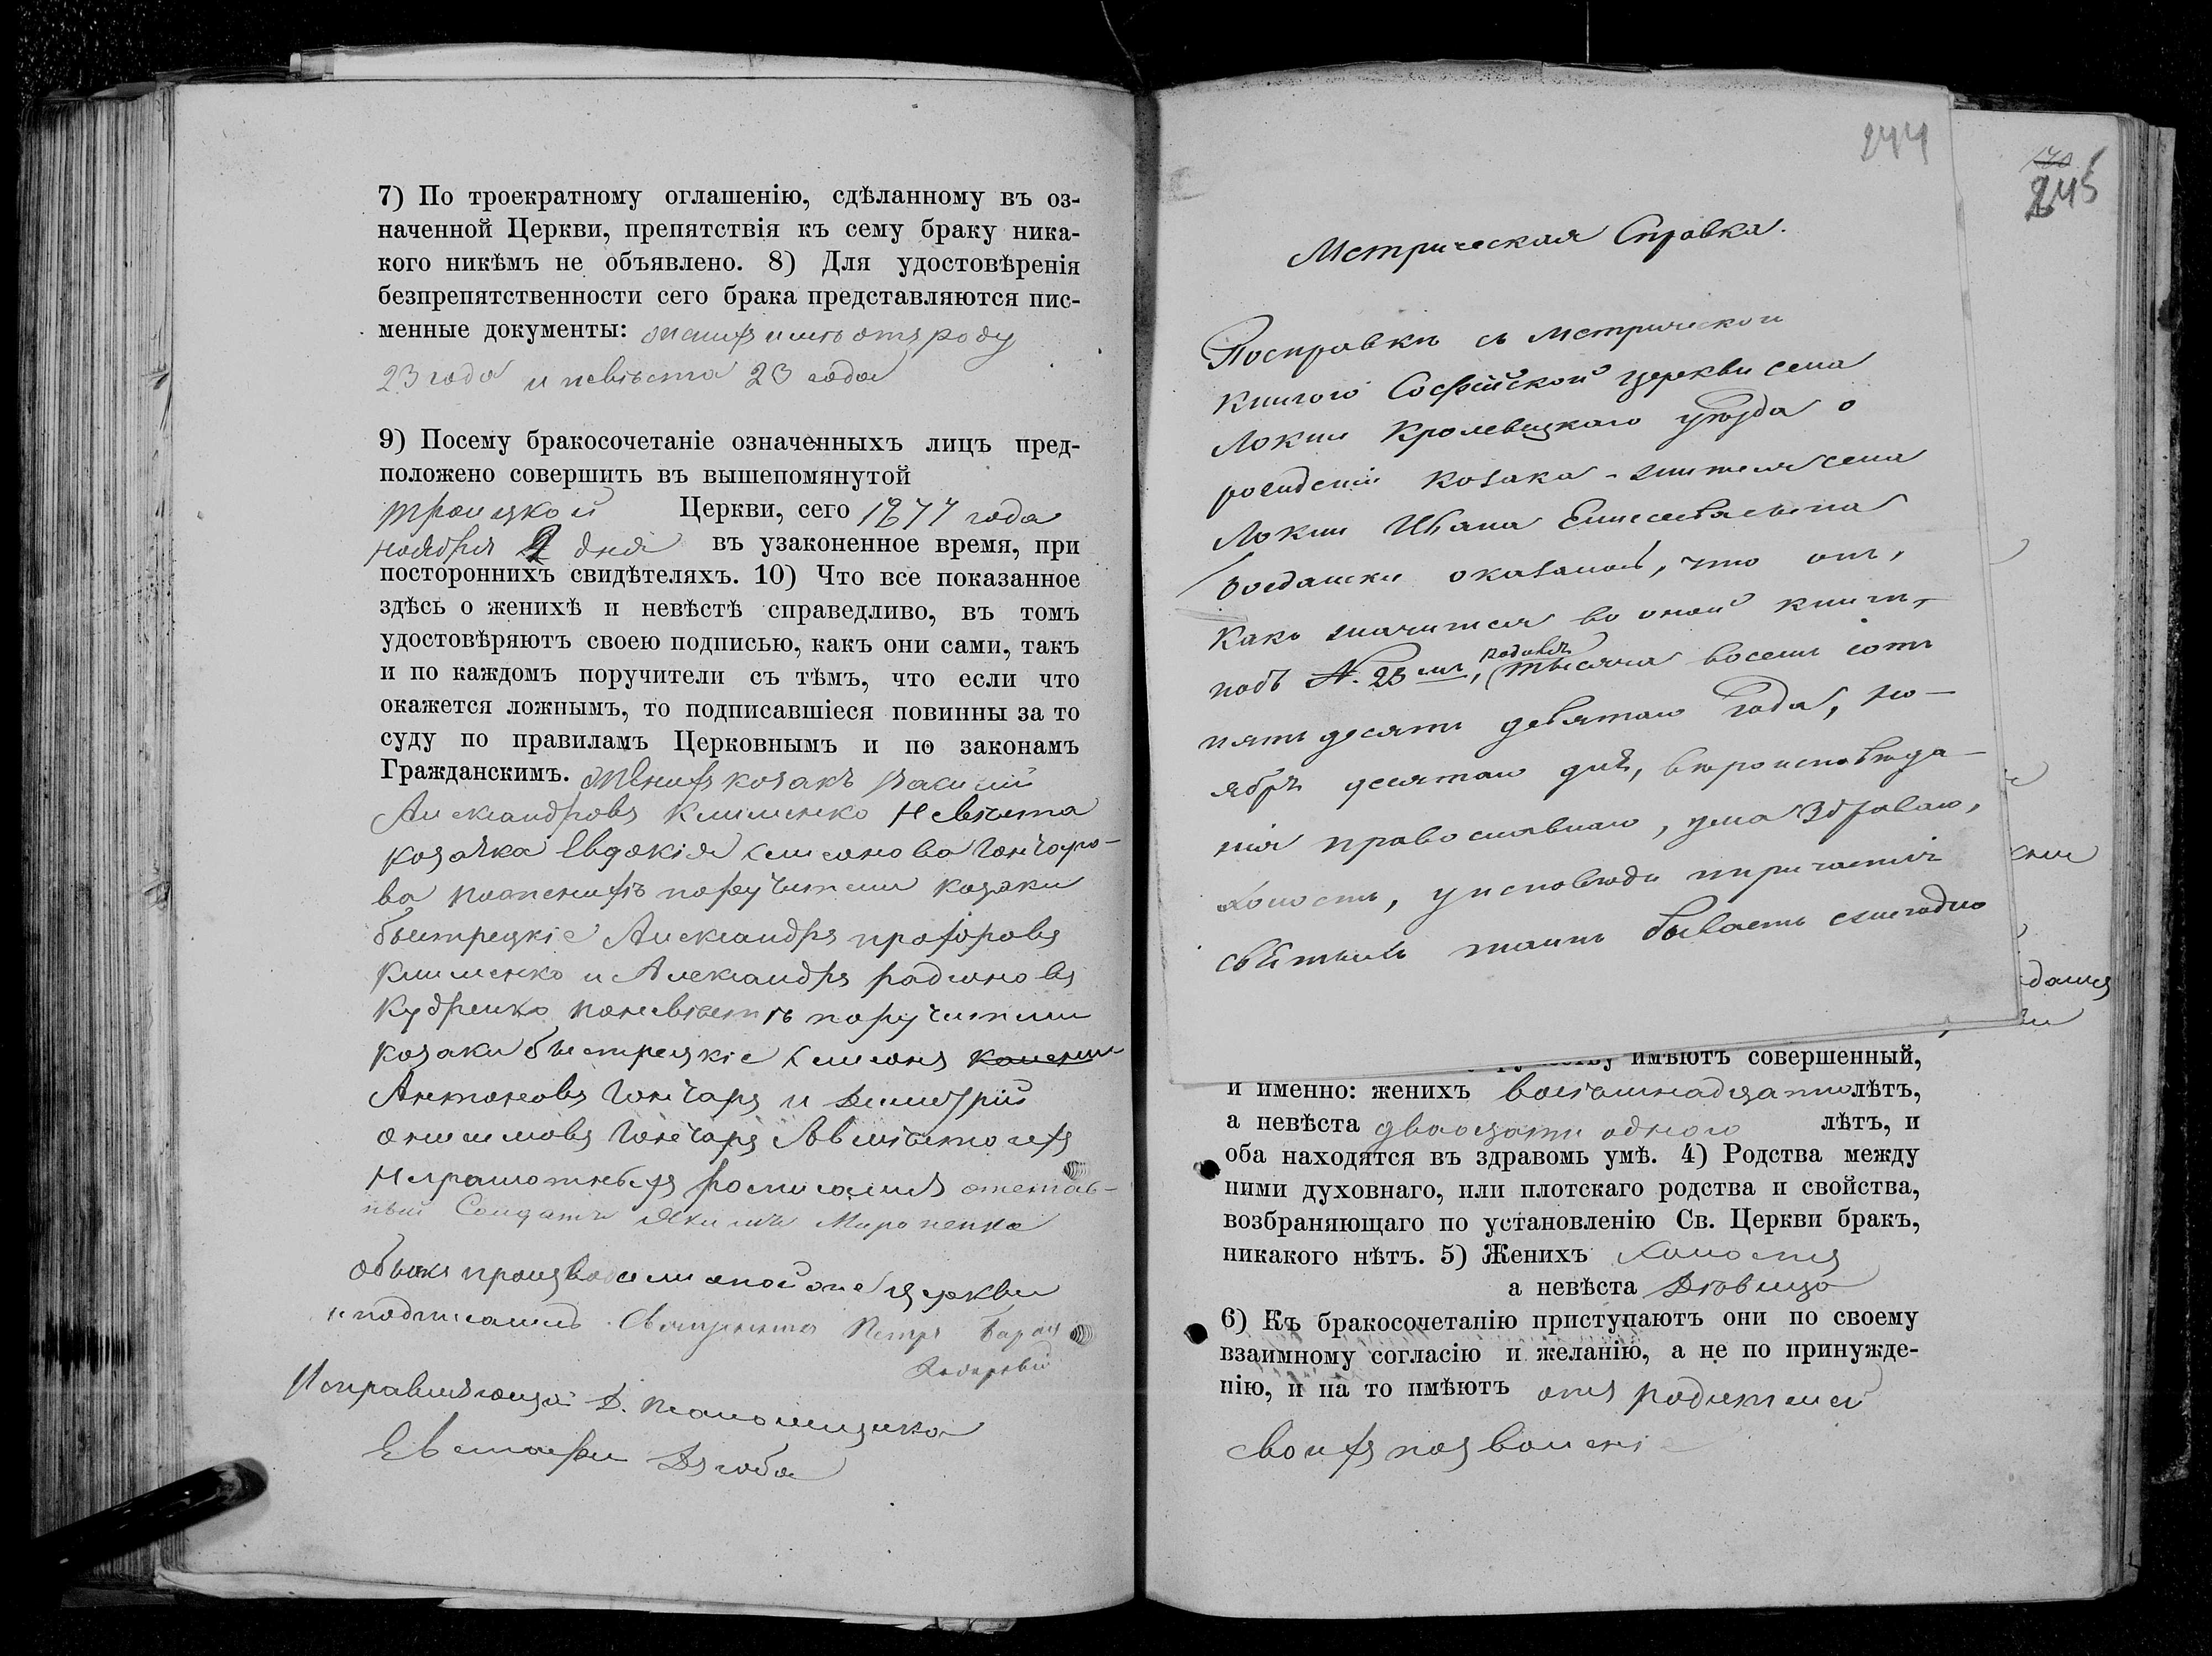 7) По троекратному оглашенію, сдѣланному въ оз-
наченной Церкви, препятствія къ сему браку ника-
кого никѣмъ не объявлено. 8) Для удостовѣренія
безпрепятственности сего брака представляются пис-
менные документы: отъ роду
23 года и невѣста 23 года
9) Посему бракосочетаніе означенныхъ лицъ пред-
положено совершить въ вышепомянутой
троицкой Церкви, сего 1877 года
ноября 2 дня въ узаконенное время, при
постороннихъ свидѣтеляхъ. 10) Что все показанное
здѣсь о женихѣ и невѣстѣ справедливо, въ томъ
удостовѣряютъ своею подписью, какъ они сами, такъ
и по каждомъ поручители съ тѣмъ, что если что
окажется ложнымъ, то подписавшіеся повинны за то
суду по правиламъ Церковнымъ и по законамъ
Гражданскимъ. Женихъ козакъ
Александровъ Клименко Невѣста
козачка Евдокія симонова Гончаро-
ва поженихѣ поручители козаки
быстрецкіе Александръ прохоровъ
Клименко и Александръ радионовъ
Кудренко поневѣстѣ поручители
козаки быстрецкіе симонъ
Антоновъ Гончаръ и Димитрій
онисимовъ Гончаръ Авмѣсто ихъ
Неграмотныхъ росписался отстав-
ный Солдатъ Якимъ Мироненко
обыскъ производили оной же церкви
и подписались Священникъ Петръ
Исправляющій Д. Псаломщика
Евстафи Дзюба
244
245
Метрическая Справка.
Посправкѣ съ метрической
книгою Софійской церкви села
Локни Кролевецкаго уѣзда о
рожденіи козака-жителя села
Локни Ивана Елисеева сына
Богдашки оказалось, что онъ,
какъ значится во оной книгѣ,
подъ №. 23мъ, родился
тысяча восемь сотъ
пятьдесятъ девятаго года, но-
ября десятаго дня, вѣроисповѣда-
нія православнаго, ума здраваго,
холостъ, у исповѣди и причастія
святыхъ таинъ бываетъ ежегодно
имѣютъ совершенный,
и именно: женихъ восѣмнадцати лѣтъ,
а невѣста двадцати одного лѣтъ, и
оба находятся въ здравомъ умѣ. 4) Родства между
ними духовнаго, или плотскаго родства и свойства,
возбраняющаго по установленію Св. Церкви бракъ,
никакого нѣтъ. 5) Женихъ холостъ
а невѣста Дѣвица
6) Къ бракосочетанію приступаютъ они по своему
взаимному согласію и желанію, а не по принужде-
нію, и на то имѣютъ отъ родителей
своихъ позволеніе